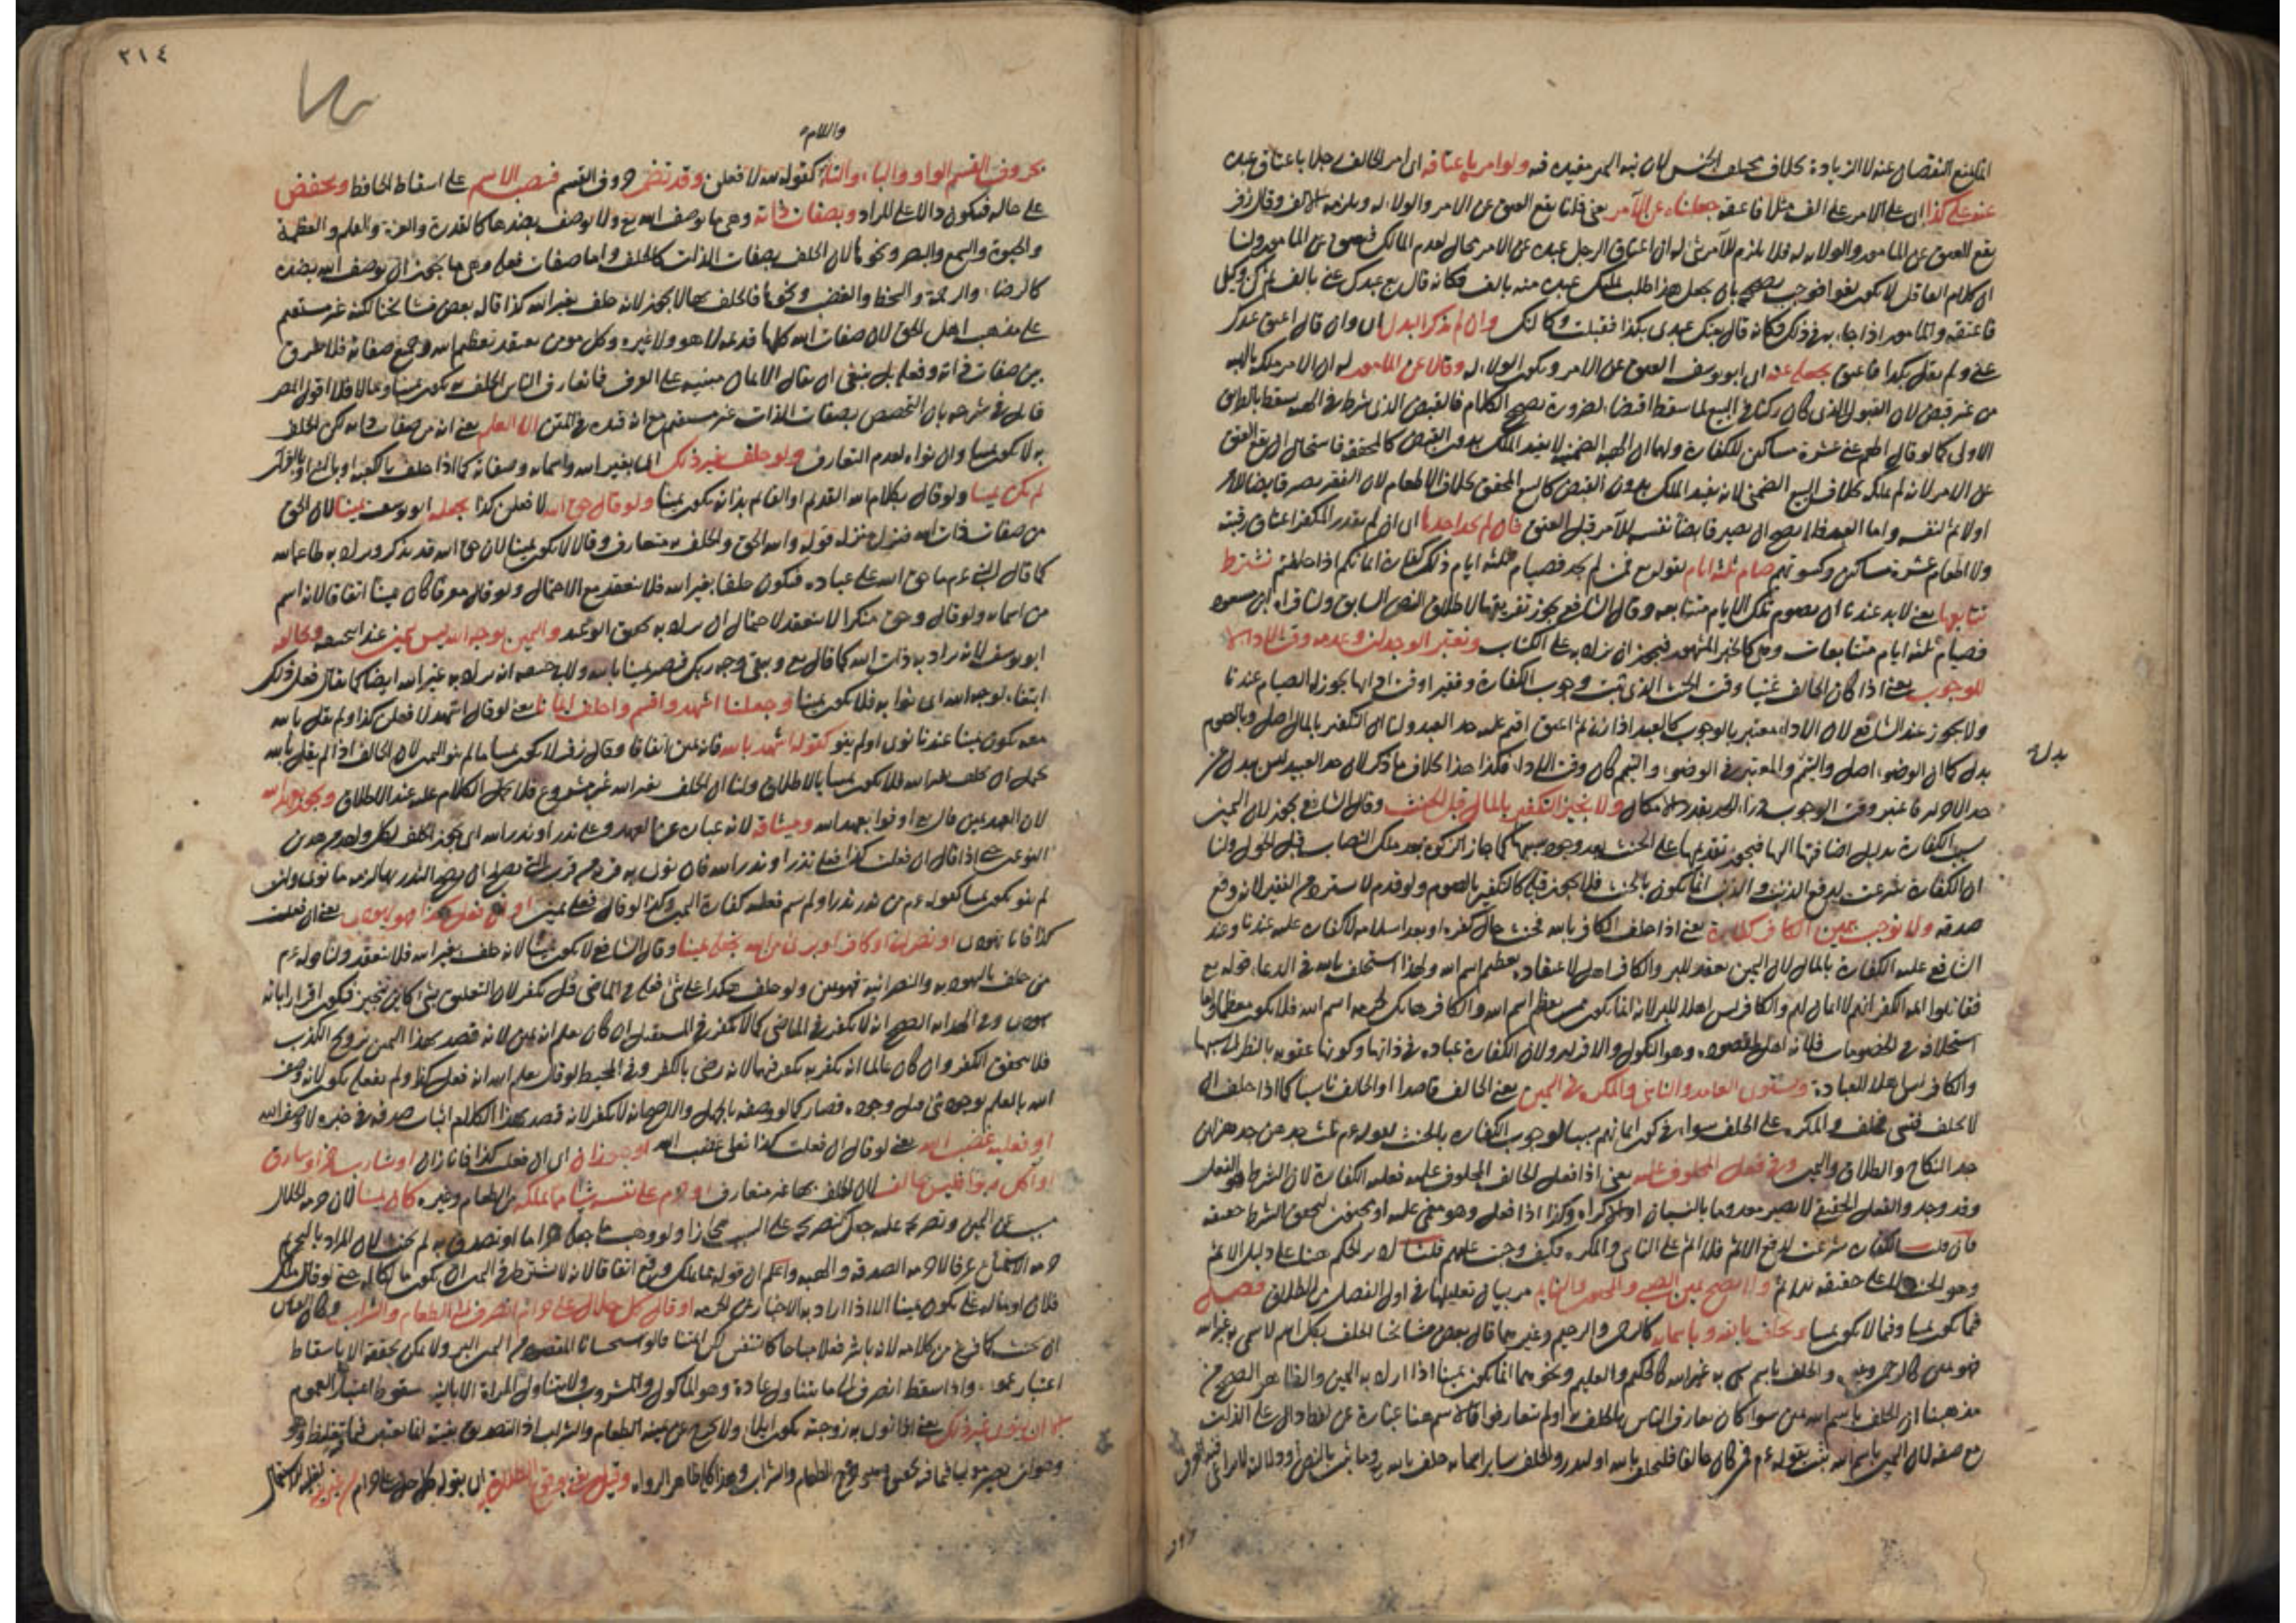 عنه على كذا اى على الامر على الف مثلا فاعتقه جعلناه عن الآمر يعنى قلنا يقع العتق عن الامر والولاء له ويلزمه الالف وقال زفر
يقع العتق عن المامور والولاء له فلا يلزم للآمر شئ له ان اعتاق الرجل عبده عن الامر محال لعدم المالك فيعتق عن المامور ولنا
فاعتقه والمامور اذا اجابه فى ذلك فكانه قال بعتك عبدى بكذا فقبلت وكالتك وان لم يذكر البدل اى وان قال اعتق عبدك
عنى ولم يقل بكذا فاعتق يجعله عنه اى ابو يوسف العتق عن الامر ويكون الولاء له وقالا عن المامور له ان الامر ملكه بالهبة
من غير قبض لان القبول الذى كان ركنا فى البيع لما سقط اقتضاء لضرورة تصحيح الكلام فالقبض الذى شرط فى الهبة سقط بالطريق
الاولى كما لو قال اطعم عنى عشرة مساكين للكفارة ولهما ان الهبة الضمنية لا يفيد الملك بدون القبض كالمحققة فاستحال ان يقع العتق
عن الامر لانه لم يملكه بخلاف البيع الضمنى لانه يفيد الملك بدون القبض كالبيع المحقق بخلاف الاطعام لان الفقير يصير قابضا للآمر
اولا ثم لنفسه واما العبد فلا يصح ان يصير قابضا نفسه للآمر قبل العتق فان لم يجد احدها اى ان لم يقدر المكفر اعتاق رقبة
ولا اطعام عشرة مساكين وكسوتهم صام ثلثة ايام لقوله تع فمن لم يجد فصيام ثلثة ايام ذلك كفارة ايمانكم اذا حلفتم نشترط
تتابعها يعنى لا بد عندنا ان يصوم تلك الايام متتابعة وقال الشافعى يجوز تفريقها لاطلاق النص السابق ولنا قراءة ابن مسعود
فصيام ثلثة ايام متتابعات وهى كالخبر المشهور فيجوز ان يزاد به على الكتاب ونعتبر الوجدان وعدمه وقت الاداء لا
للوجوب يعنى اذا كان الحالف غنيا وقت الحنث الذى ثبت وجوب الكفارة وفقيرا وقت ادائها يجوز له الصيام عندنا
ولا يجوز عند الشافعى لان الاداء معتبر بالوجوب كالعبد اذا زنى ثم اعتق اقيم عليه حد العبد ولنا ان التكفير بالمال اصل وبالصوم
بدل كما ان الوضوء اصل والتيمم والمعتبر فى الوضوء والتيمم كان وقت الاداء فكذا هذا بخلاف ما ذكر لان حد العبيد ليس ببدل من
بدل
حد الاحرار فاعتبر وقت الوجوب ولا نجيز التكفير بالمال قبل الحنث وقال الشافعى يجوز لان اليمين
سبب الكفارة بدليل اضافتها اليها فيجوز تقديمها على الحنث بعد وجود سببها كما جاز الزكوة بعد ملك النصاب قبل الحول ولنا
ان الكفارة شرعت لدفع الذنب والذنب انما يكون بالحنث فلا يجوز قبله كالتكفير بالصوم ولو قدم لا يسترد من الفقير لانه وقع
صدقة ولا نوجب بيمين الكافر كفارة يعنى اذا حلف الكافر بالله فحنث حال كفره او بعد اسلامه لا كفارة عليه عندنا وعند
الشافعى عليه الكفارة بالمال لان اليمين يعقد للبر والكافر اهل لاعتقاده تعظيم اسم الله ولهذا استحلف بالله فى الدعاء قوله تع
فقاتلوا ائمة الكفر انهم لا ايمان لهم والكافر ليس اهلا للبر لانه انما يكون ممن يعظم اسم الله والكافر هاتك لحرمة اسم الله فلا يكون معظما واما
استحلافه فى الخصومات فلانه اهل لمقصوده وهو النكول والاقرار ولان الكفارة عبادة فى ذاتها وكونها عقوبة بالنظر الى سببها
والكافر ليس اهلا للعبادة ويستوى العامد والناسى والمكره فى اليمين يعنى الحالف قاصدا او الحالف ناسيا كما اذا حلف ان
لا يحلف فنسى فحلف والمكره على الحلف سواء فى كون ايمانهم سببا لوجوب الكفارة بالحنث لقوله عم ثلث جدهن جد وهزلهن
جد النكاح والطلاق واليمين وفى فعل المحلوف عليه يعنى اذا فعل الحالف المحلوف عليه فعليه الكفارة لان الشرط هو الفعل
وقد وجد والفعل الحقيقى لا يصير معدوما بالنسيان او الاكراه وكذا اذا فعله وهو مغمى عليه او مجنون لتحقق الشرط حقيقة
فان قلت الكفارة شرعت لدفع الاثم فلا اثم على الناسى والمكره فكيف وجبت عليهم قلنا ادير الحكم هنا على دليل الاثم
وهو الحنث لا على حقيقة الاثم ولا يصح يمين الصبى والمجنون والنايم مر بيان تعليلها فى اول الفصل من الطلاق فصل
فيما يكون يمينا وفيما لا يكون يمينا ويحلف بالله وباسمائه كالرحمن والرحيم وغيرهما قال بعض مشايخنا الحلف بكل اسم لا يسمى به غير الله
فهو يمين كالرحمن والحلف باسم يسمى به غير الله كالحكيم والعليم ونحوهما انما يكون يمينا اذا اراد به اليمين والظاهر الصحيح من
مذهبنا ان الحلف باسم الله يمين سواء كان تعارف الناس بالحلف به او لم يتعارفوا فالاسم هنا عبارة عن لفظ دال على الذات
مع صفة لان اليمين باسم الله ثبت بقوله عم من كان حالفا فليحلف بالله او ليذر والحلف بساير اسمائه حلف بالله وما ثبت بالنص او دلالته لا يراعى فيه العرف
٢١٤
واللام
بحروف القسم الواو والباء والتاء كقوله لله لافعلن وقد تضمر حروف القسم فينصب الاسم على اسقاط الخافض ويخفض
على حاله فيكون دالا على المراد وبصفات ذاته وهى ما يوصف الله تع ولا يوصف بضدها كالقدرة والعزة والعلم والعظمة
والحيوة والسمع والبصر ونحوها لان الحلف بصفات الذات كالحلف واما صفات فعله وهى ما يجوز ان يوصف الله بضده
كالرضاء والرحمة والسخط والغضب ونحوها فالحلف بها لا يجوز لانه حلف بغير الله كذا قاله بعض مشايخنا لكنه غير مستقيم
على مذهب اهل الحق لان صفات الله كلها قديمة لا هو ولا غيره وكل مومن يعتقد تعظيم الله وجميع صفاته فلا طريق
بين صفات ذاته وفعله بل ينبغى ان يقال الايمان مبنية على العرف فما تعارف الناس الحلف به يكون يمينا وما لا فلا اقول المص
قايل فى شرحه بان التخصيص بصفات الذات غير مستقيم مع انه قيده فى المتن الا العلم يعنى انه من صفات ذاته لكن الحلف
به لا يكون يمينا وان نواه لعدم التعارف ولو حلف بغير ذلك اى بغير الله واسمائه وصفاته كما اذا حلف بالكعبة او بالنبى او بالقرآن
لم يكن يمينا ولو قال بكلام الله القديم او القايم بذاته يكون يمينا ولو قال حق الله لا فعلن كذا يجعله ابو يوسف يمينا لان الحق
من صفات ذات الله فنزل منزلة قوله والله الحق والحلف به متعارف وقالا لا يكون يمينا لان حق الله قد يذكر ويراد به طاعة الله
كما قال النبى عم ما حق الله على عباده فيكون حلفا بغير الله فلا ينعقد مع الاحتمال ولو قال معرفا كان يمينا اتفاقا لانه اسم
من اسمائه ولو قال وحق منكرا لا ينعقد لاحتمال ان يراد به تحقيق الوعد واليمين بوجه الله ليس بيمين عند ابى حنيفة وخالفه
ابو يوسف لانه يراد به ذات الله كما قال تع ويبقى وجه ربك فيصير يمينا بالله ولابى حنيفة انه يراد به غير الله ايضا كما يقال فعل ذلك
ابتغاء لوجه الله اى ثوابه فلا يكون يمينا وجعلنا اشهد واقسم واحلف ايمانا يعنى لو قال اشهد لا فعلن كذا ولم يقل بالله
معه يكون يمينا عندنا نوى او لم ينو كقوله اشهد بالله فانه يمين اتفاقا وقال زفر لا يكون يمينا ما لم ينو اليمين لان الحالف اذا لم يقل بالله
يحتمل ان يحلف بغير الله فلا يكون يمينا بالاطلاق ولنا ان الحلف بغير الله غير مشروع فلا يحمل الكلام عليه عند الاطلاق وبعهد الله
لان العهد يمين قال تع اوفوا بعهد الله وميثاقه لانه عبارة عن العهد وعلى نذر او نذر الله
لم ينو يكون يمينا لقوله عم من نذر نذرا ولم يسم فعليه كفارة اليمين وكذا لو قال فعلى يمين او ان فعل كذا فهو يهودى يعنى ان فعلت
كذا فانا يهودى او نصرانى او كافر او برئ من الله يجعل يمينا وقال الشافعى لا يكون يمينا لانه حلف بغير الله فلا ينعقد ولنا قوله عم
من حلف باليهودية والنصرانية فهو يمين ولو حلف هكذا على شئ فعله فى الماضى قيل يكفر لان التعليق بشئ كاين تنجيز فيكون اقرارا بانه
يهودى وفى الهداية الصحيح انه لا يكفر فى الماضى كما لا يكفر فى المستقبل ان كان يعلم انه يمين لانه قصد بهذا اليمين ترويج الكذب
فلا يتحقق الكفر وان كان عالما انه يكفر به يكفر فيهما لانه رضى بالكفر وفى المحيط لو قال يعلم الله انه فعل كذا ولم يفعله يكون لانه وصف
الله بالعلم بوجود شئ قبل وجوده فصار كما لو وصفه بالجهل والاصح انه لا يكفر لانه قصد بهذا الكلام اثبات صدقه فى خبره لا وصف الله
او فعليه غضب الله يعنى لو قال ان فعلت كذا فعلى غضب الله او هو زان اى ان فعل كذا فانا زان او شارب خمر او سارق
او آكل ربوا فليس حالف لان الحلف بها غير متعارف او حرم على نفسه شيئا مما يملكه من الطعام وغيره كان يمينا لان حرمة الحلال
سبب عن اليمين وتصريحه عليه جعل كتصريحه على السبب مجازا ولو وهب ما جعله حراما او تصدق به لم يحنث لان المراد بالتحريم
حرمة الاستمتاع عرفا لا حرمة الصدقة والهبة واعلم ان قوله مما يملكه وقع اتفاقا لانه لا يشترط فى اليمين ان يكون مالكا له حتى لو قال ملك
فلان او ماله على يكون يمينا الا اذا اراد به الاخبار عن الحرمة او قال كل حلال على حرام انصرف الى الطعام والشراب وكان القياس
ان يحنث كما فرغ من كلامه لانه باشر فعلا مباحا كالتنفس لكن ائمتنا قالوا استحسانا المقصود من اليمين البر ولا يمكن تحققه الا باسقاط
اعتبار عمومه واذا سقط انصرف الى ما يتناول عادة وهو الماكول والمشروب ولا يتناول المراة الا بالنية سقوط اعتبار العموم
الا ان ينوى غير ذلك يعنى اذا نوى به زوجته يكون ايلاء ولا يخرج عن يمينه الطعام والشراب